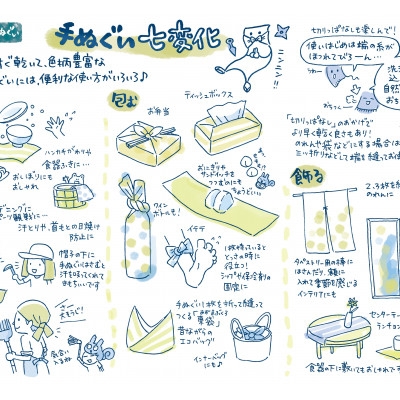 手ぬぐい七変化
ぐに乾いて、色柄豊富な
ぐいには、便利な使い方がいろいろ♪
ハンカチがわりや
食器ふきに…
おしぼりにも
おしゃれ
デニングに
ポーツ観戦に…
汗とり や、首もとの日焼け
防止に
帽子の下に
手ぬぐいはさむと
汗を吸ってくれて
きもちいいです
包む
お弁当
ティッシュボックス
おにぎりや
サンドイッチを
つつむのにも
ちょうどいい
ワイン
ボトルも!
イテテ
1枚持っていると
とっさの時に
役立つ!
シップや保冷剤の
固定に
手ぬぐい1枚を折って縫って
つくる「あずま袋」
昔ながらの
エコバッグ
インナーバッグ
にも♪
切りっぱなしも楽しんで!
使いはじめは端の糸が
ほつれてびろーん…
洗濯
自然
「切りっぱなし」のおかげで
より早く乾く良さもあり!
のれんや袋などにする場合は
三ツ折りなどして端も縫ってね
飾る
2、3枚を
のれんに
タペストリー用の棒に
はさんだり、額に
入れて季節を感じる
インテリアにも
センターテ
ランチョン
食器の下に敷いてもおしゃれです